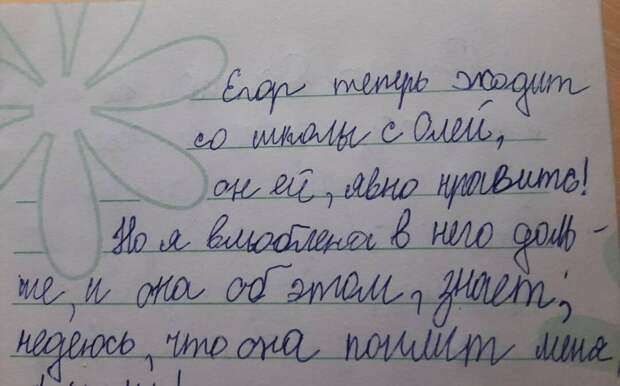 Егор теперь ходит
со школы с Олей,
он ей, явно нравить!
Но я влюблена в него доль-
ше, и она об этом, знает;
надеюсь, что она поймёт меня